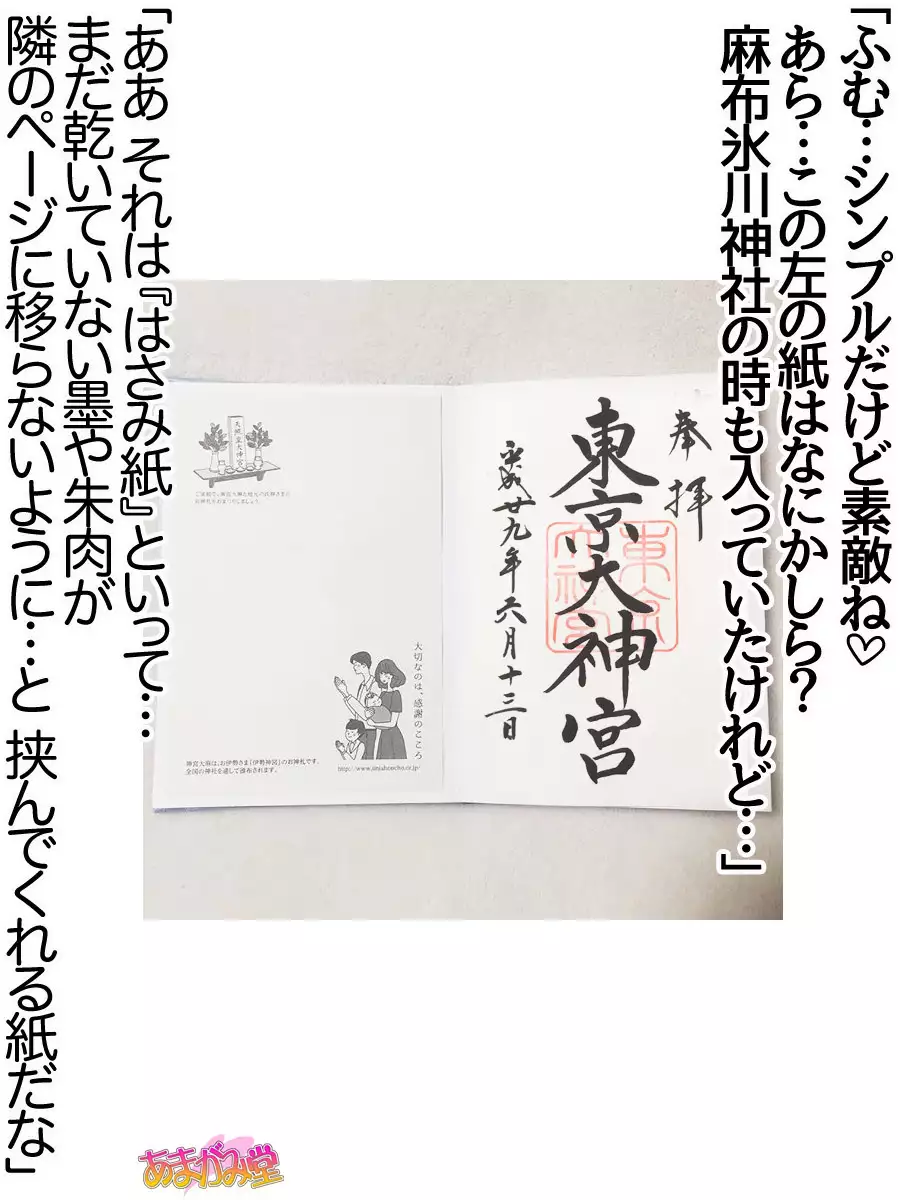 「ふむ…シンプルだけど素敵ね♡
あら…この左の紙はなにかしら?
麻布氷川神社の時も入っていたけれど…」
奉拝
東京大神宮
平成廿九年六月十三日
天照皇大神宮
大切なのは、感謝のこころ
神宮大麻は、お伊勢さま「伊勢神宮」のお神札です。
全国の神社を通して頒布されます。
「ああ それは『はさみ紙』といって…
まだ乾いていない墨や朱肉が
隣のページに移らないように…と 挟んでくれる紙だな」
あまがみ堂